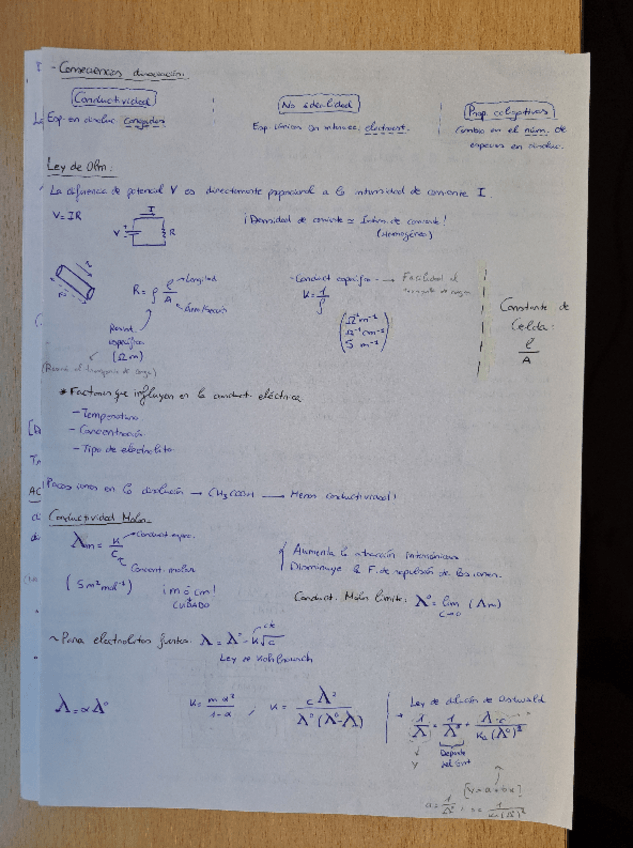 - Consecuencias disociación.
Conductividad
No idealidad
Prop. coligativas
Esp. en disoluc. cargadas
Esp. iónicas con interacc. electrost.
Cambio en el núm. de
especies en disoluc.
Ley de Ohm:
La diferencia de potencial V es directamente proporcional a la intensidad de corriente I.
V=IR
I
V
R
¡Densidad de corriente ≈ Intens. de corriente!
(Homogéneo)
R = ρ l/A
Longitud
Área/Sección
Resist.
específica
(Ω m)
(Resist. al transporte de carga)
- Conduct. específica → Facilidad al
transporte de carga
K = 1/ρ
(Ω⁻¹ m⁻¹
Ω⁻¹ cm⁻¹
S m⁻¹)
Constante de
Celda:
l/A
* Factores que influyen en la conduct. eléctrica
- Temperatura
- Concentración
- Tipo de electrolito.
Pocos iones en la disolución → CH₃COOH → Menos conductividad!
Conductividad Molar.
Λm = K/C
Conduct. espec.
Concent. molar
(S m² mol⁻¹)
¡m ó cm!
CUIDADO
Aumenta la atracción interiónica
Disminuye la F. de repulsión de los iones.
Conduct. Molar límite: Λ° = lim (Λm)
C→0
~ Para electrolitos fuertes: Λ = Λ° - K√c
cte
Ley de Kohlrausch
Λ = αΛ°
K = mα²/1-α ; K = cΛ²/Λ°(Λ°-Λ)
→ Ley de dilución de Ostwald
1/Λ = 1/Λ° + Λ·c/Ka(Λ°)²
y
Depende
del Elect
[y = a + bx]
a = 1/Λ° ;